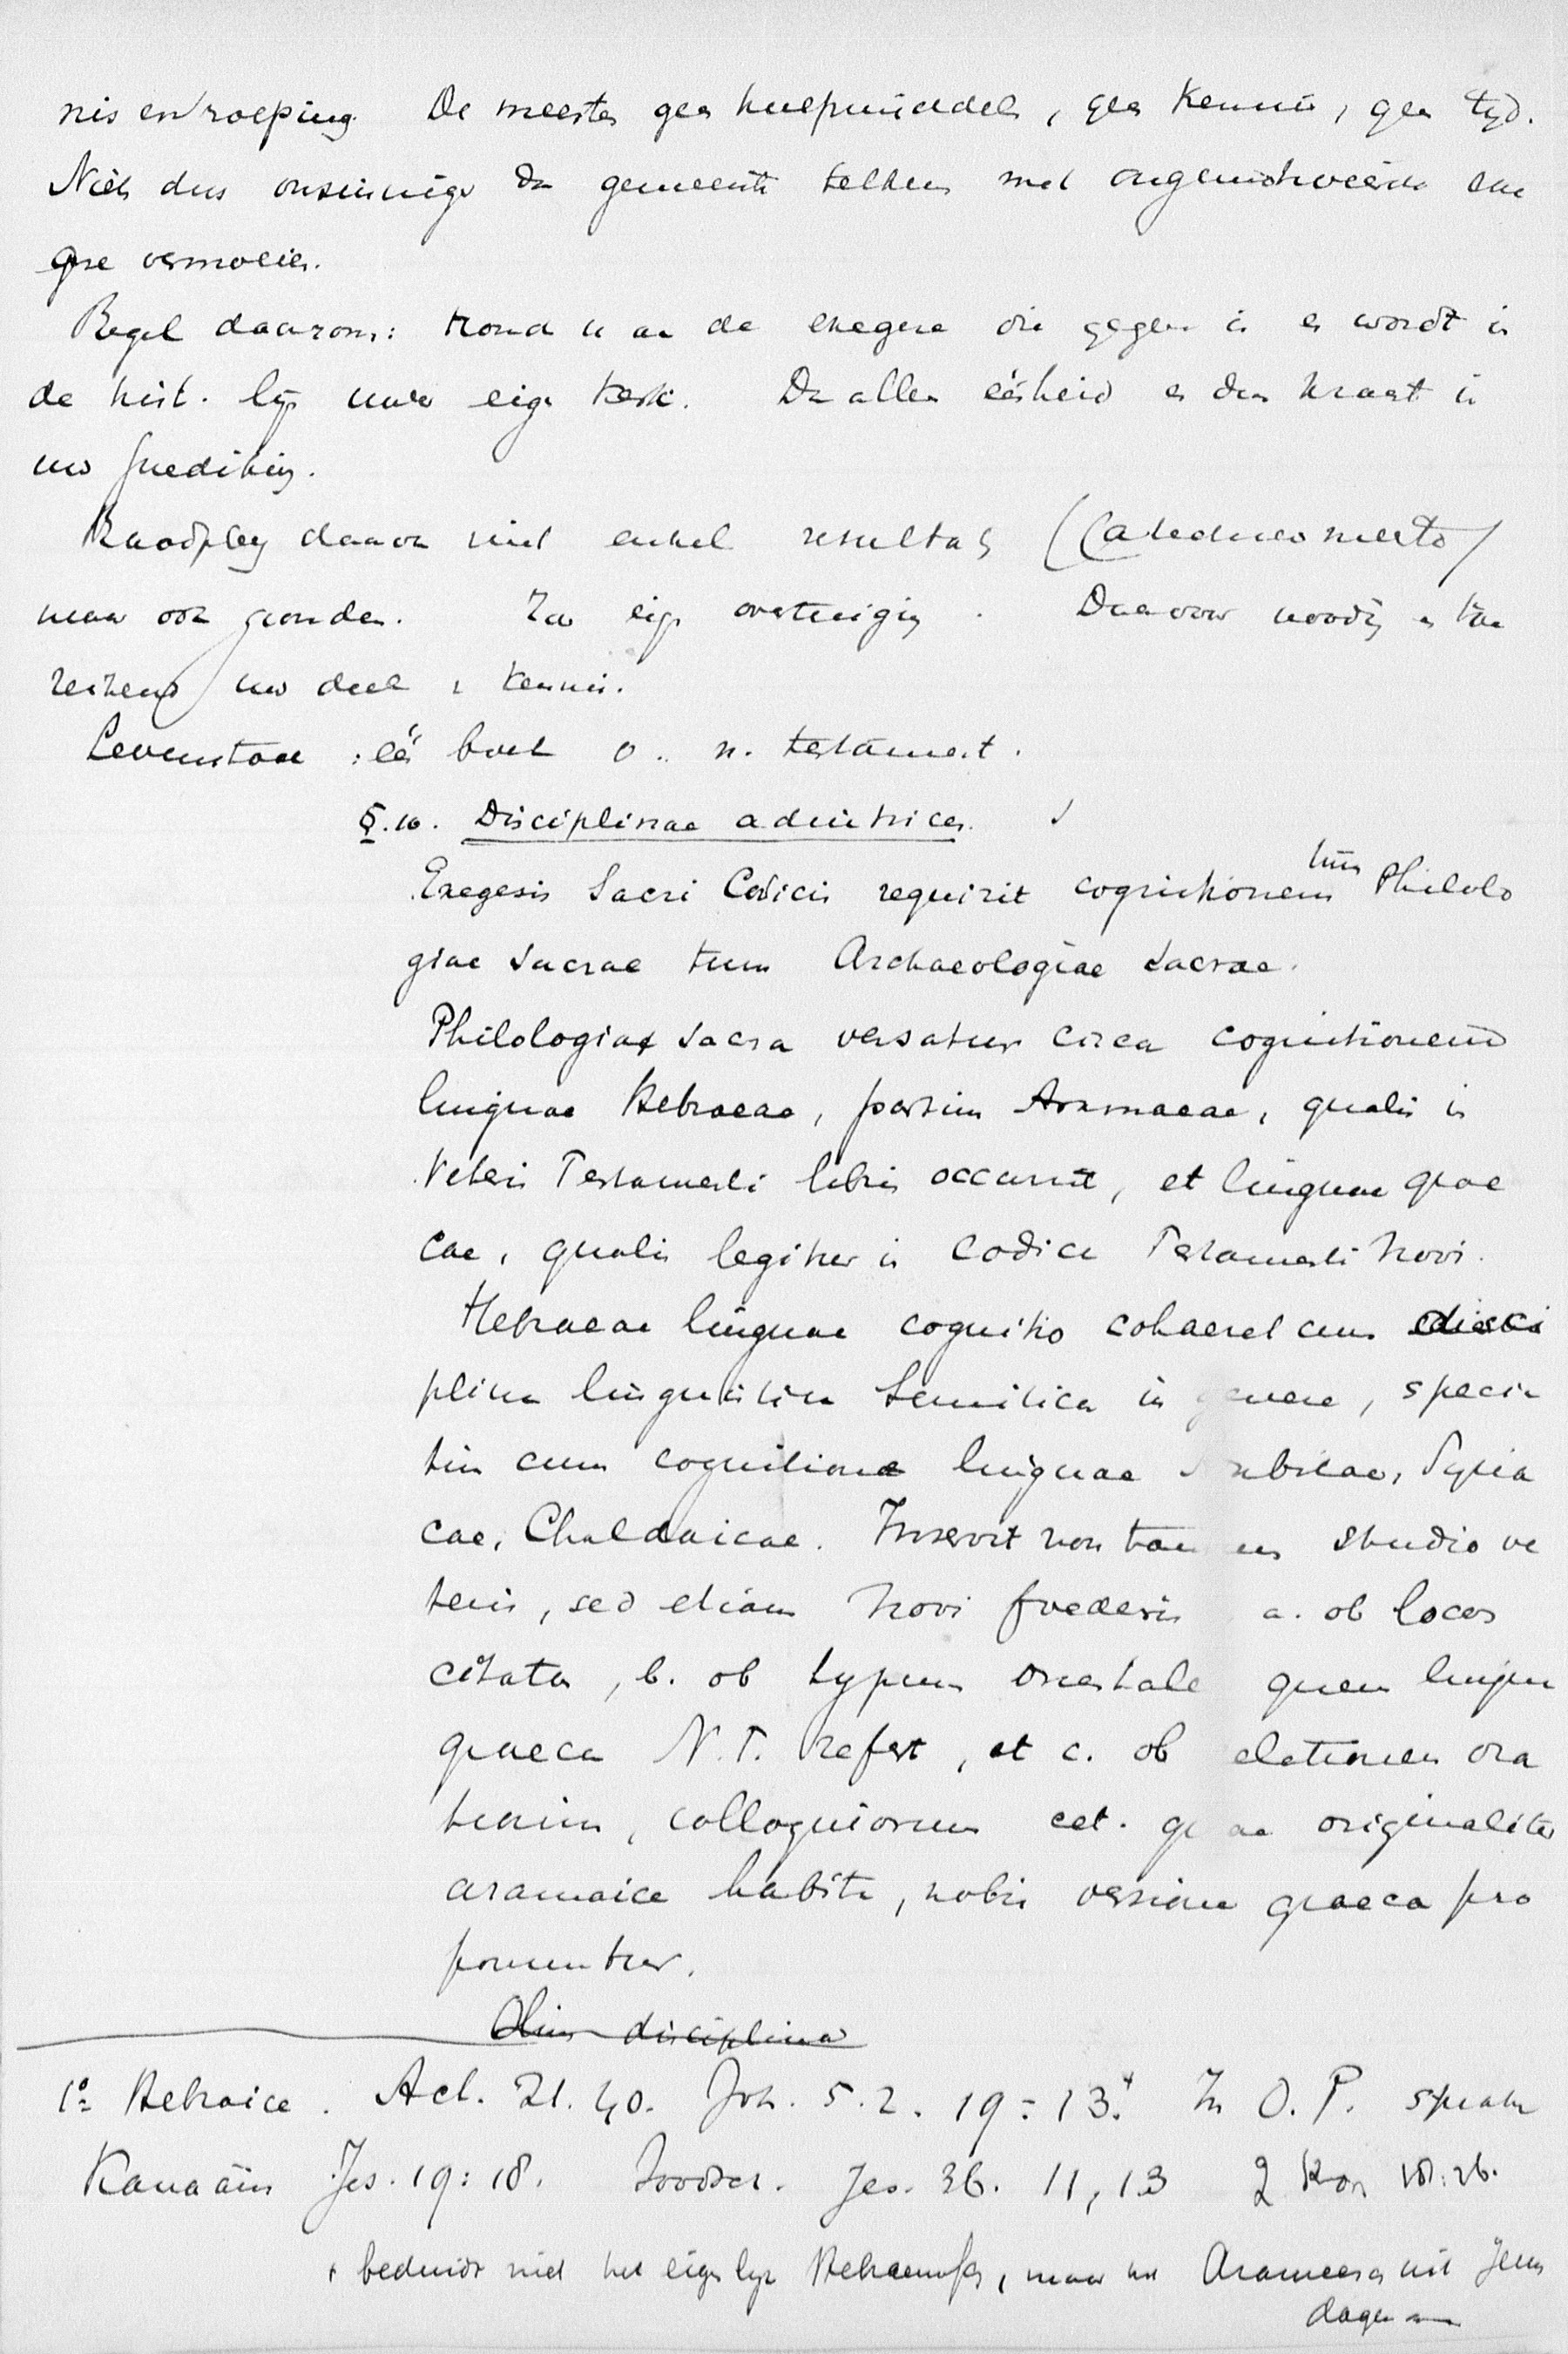 nis en roeping. De meeste gea hulpmiddele, gea kennis, gea tijd.
Niet dus onzinnige de gemeente telkens met ongemotiveerde exe
gese vermoeien.
Regel daarom: houd u aan de exegese die gegeven is en wordt in
de hist. lijn uwer eigen kerk. Da alleen eenheid en dan kracht in
uw prediking.
Raadpleeg daarvan niet enkel resultat
maar ook gronden. Zoo eigen overtuiging. Daarvoor noodig
uw deel kennis.
Levenstaak: één boek o. n. testament.
§.10. Disciplinae adiutrices.
Exegesis Sacri Codicis requirit cognitionem tum Philolo
giae Sacrae tum Archaeologiae Sacrae.
Philologia Sacra versatur circa cognitionem
linguae Hebraeae, partim Aramaeae, qualis in
Veteris Testamenti libris occurrit, et linguae grae
cae, qualis legitur in Codice Testamenti Novi.
Hebraeae linguae cognitio cohaeret cum disci
plina linguistica Semitica in genere, specia
tim cum cognitione linguae Arabicae, Syria
cae, Chaldaicae. Inservit non tantum studio ve
teris, sed etiam Novi foederis a. ob locos
citatos, b. ob typum orientale quem lingua
graeca N.T. refert, et c. ob relationem ora
tionum, colloquiorum cet. quae originaliter
aramaice habita, nobis versione graeca pro
ponuntur.
Olim disciplina
1º Hebraice. Act. 21.40. Joh. 5.2. 19:13.+ In O.T. spraak
Kanaäns Jes. 19:18. Joodsch. Jes. 36. 11, 13 2 Kon 18:26.
+ beduidt niet het eigenlijk Hebreeuwsch, maar het Arameesch uit Jezus
dagen